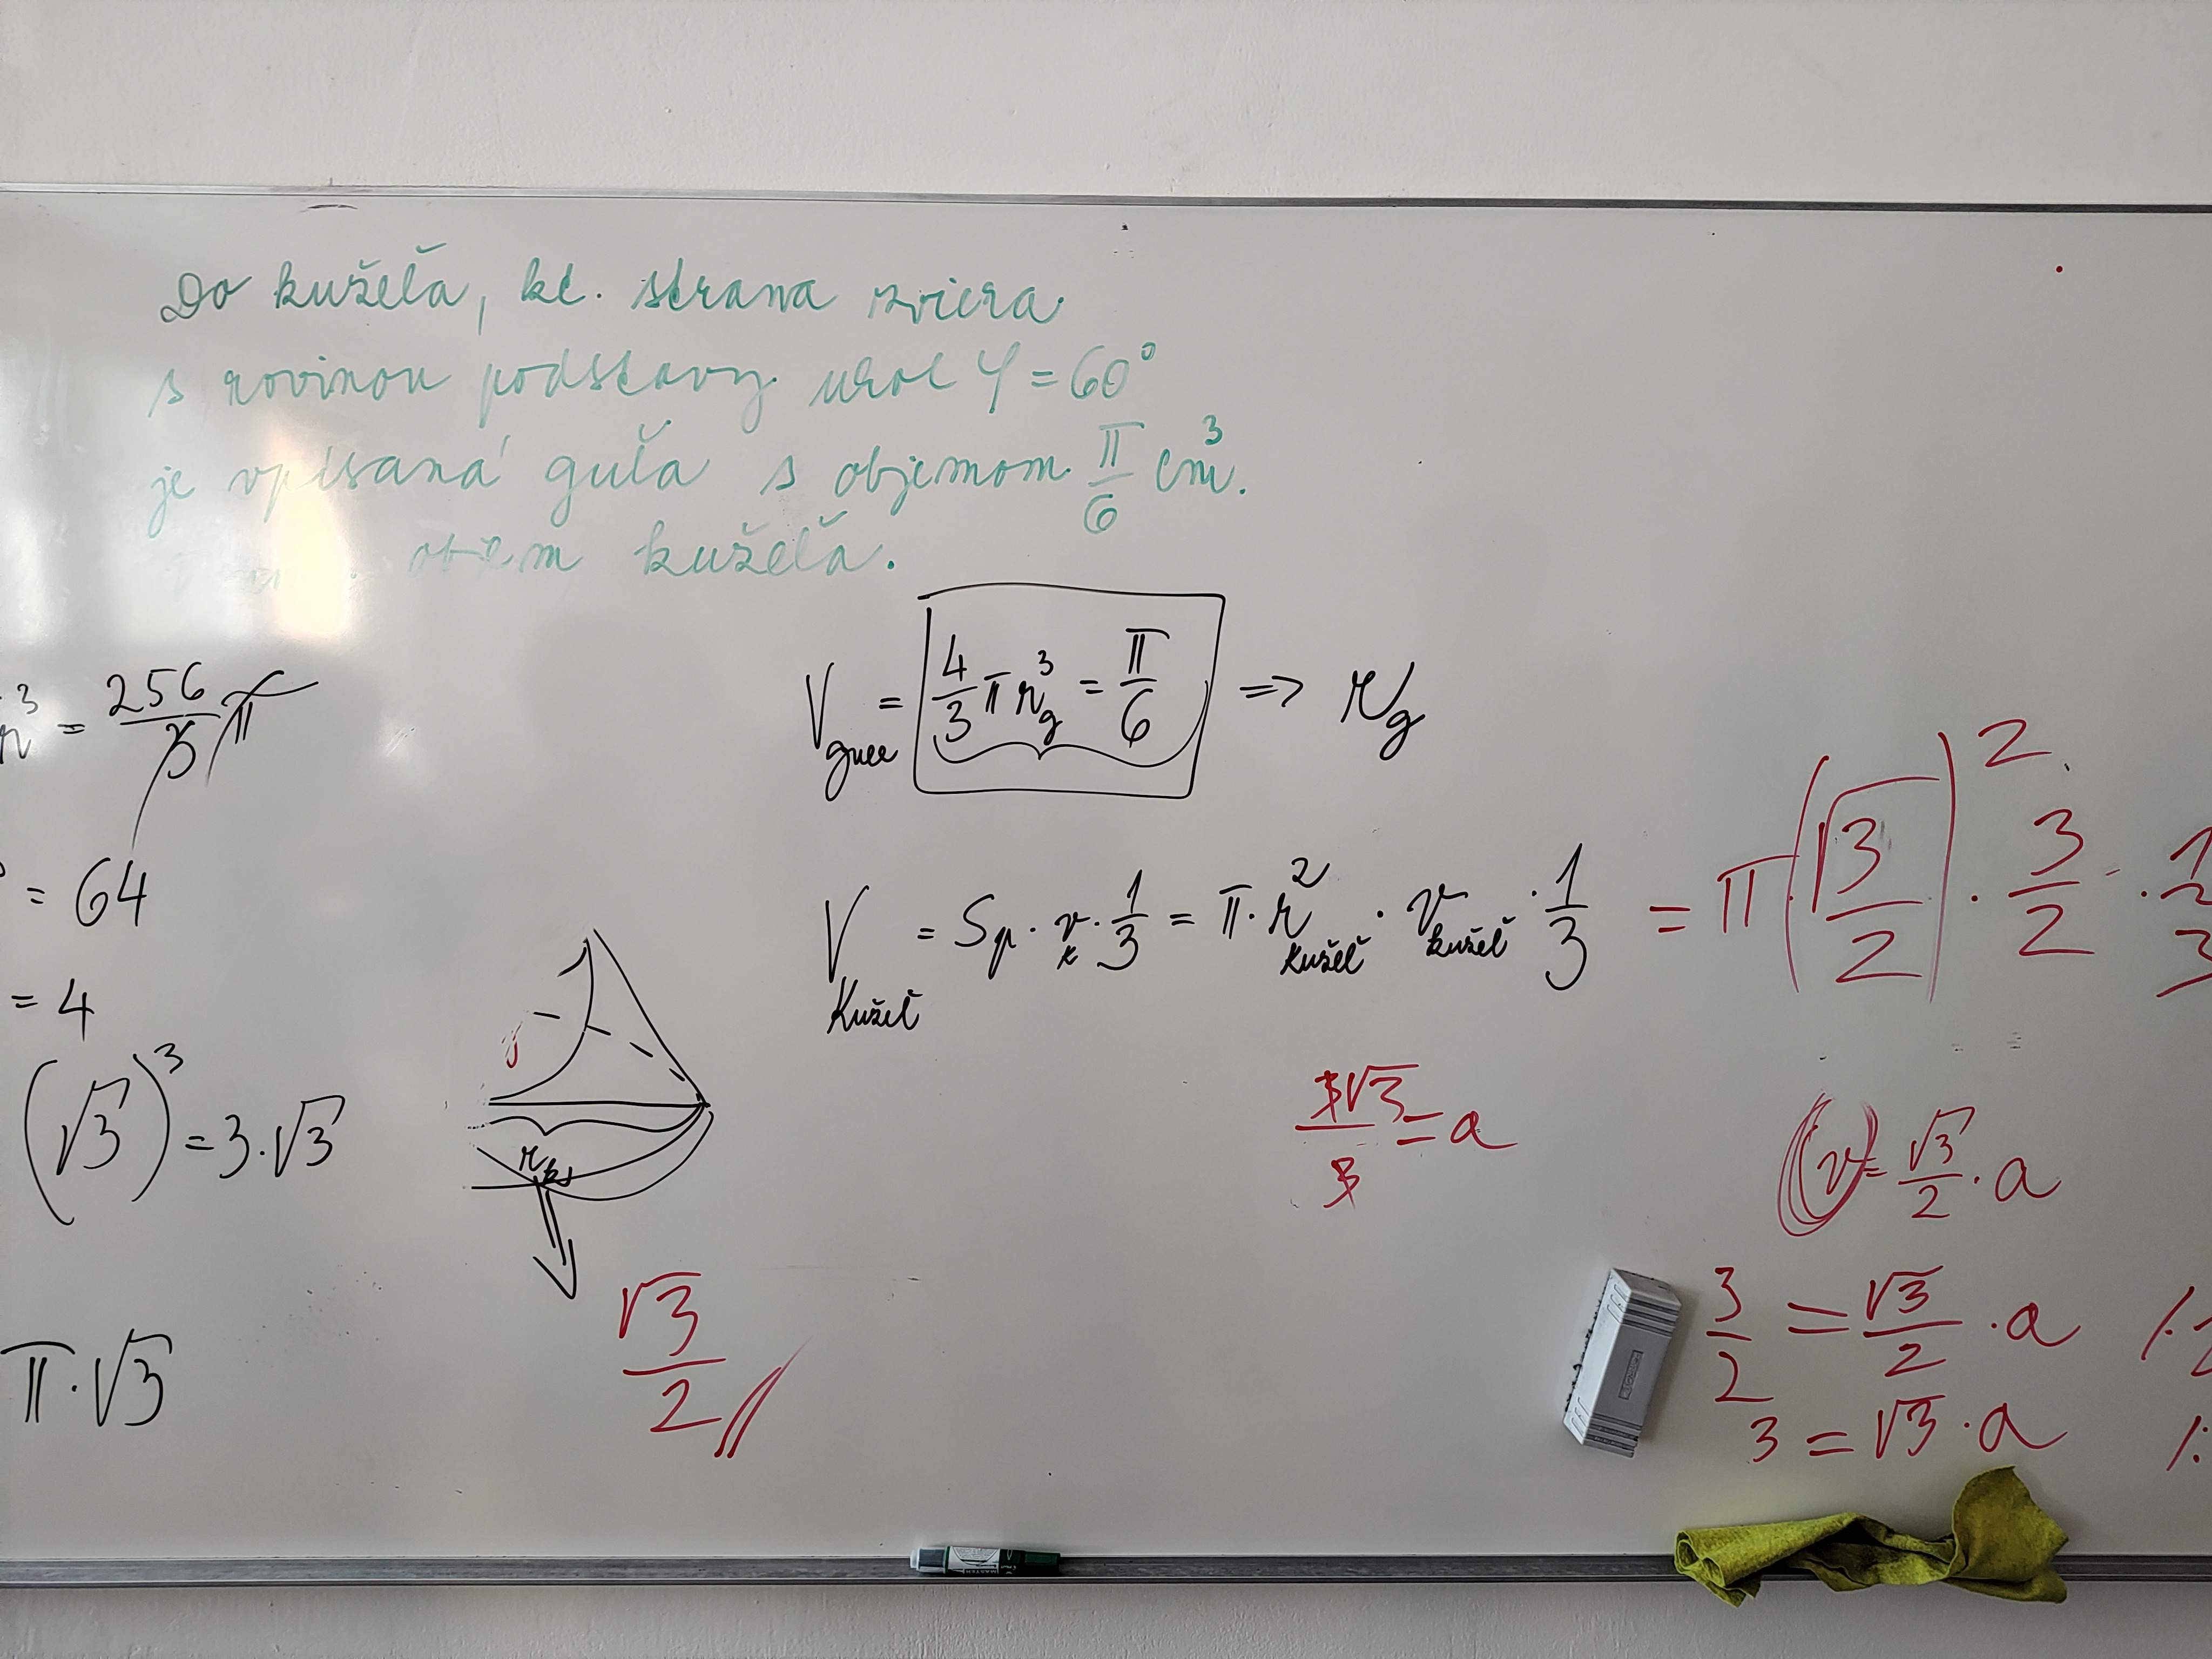 Do kužeľa, kt. strana zviera
s rovinou podstavy uhol φ = 60°
je vpísaná guľa s objemom π/6 cm³.
objem kužeľa.
r³ = 256/3 π
= 64
= 4
(√3)³ = 3·√3
π·√3
V gule = 4/3 π r_g³ = π/6 => r_g
V kužeľ = Sp · v_k · 1/3 = π · r²_kužeľ · v_kužeľ · 1/3 = π · (√3/2)² · 3/2 ·
r_k
√3/2
3√3/3 = a
v = √3/2 · a
3/2 = √3/2 · a
3 = √3 · a